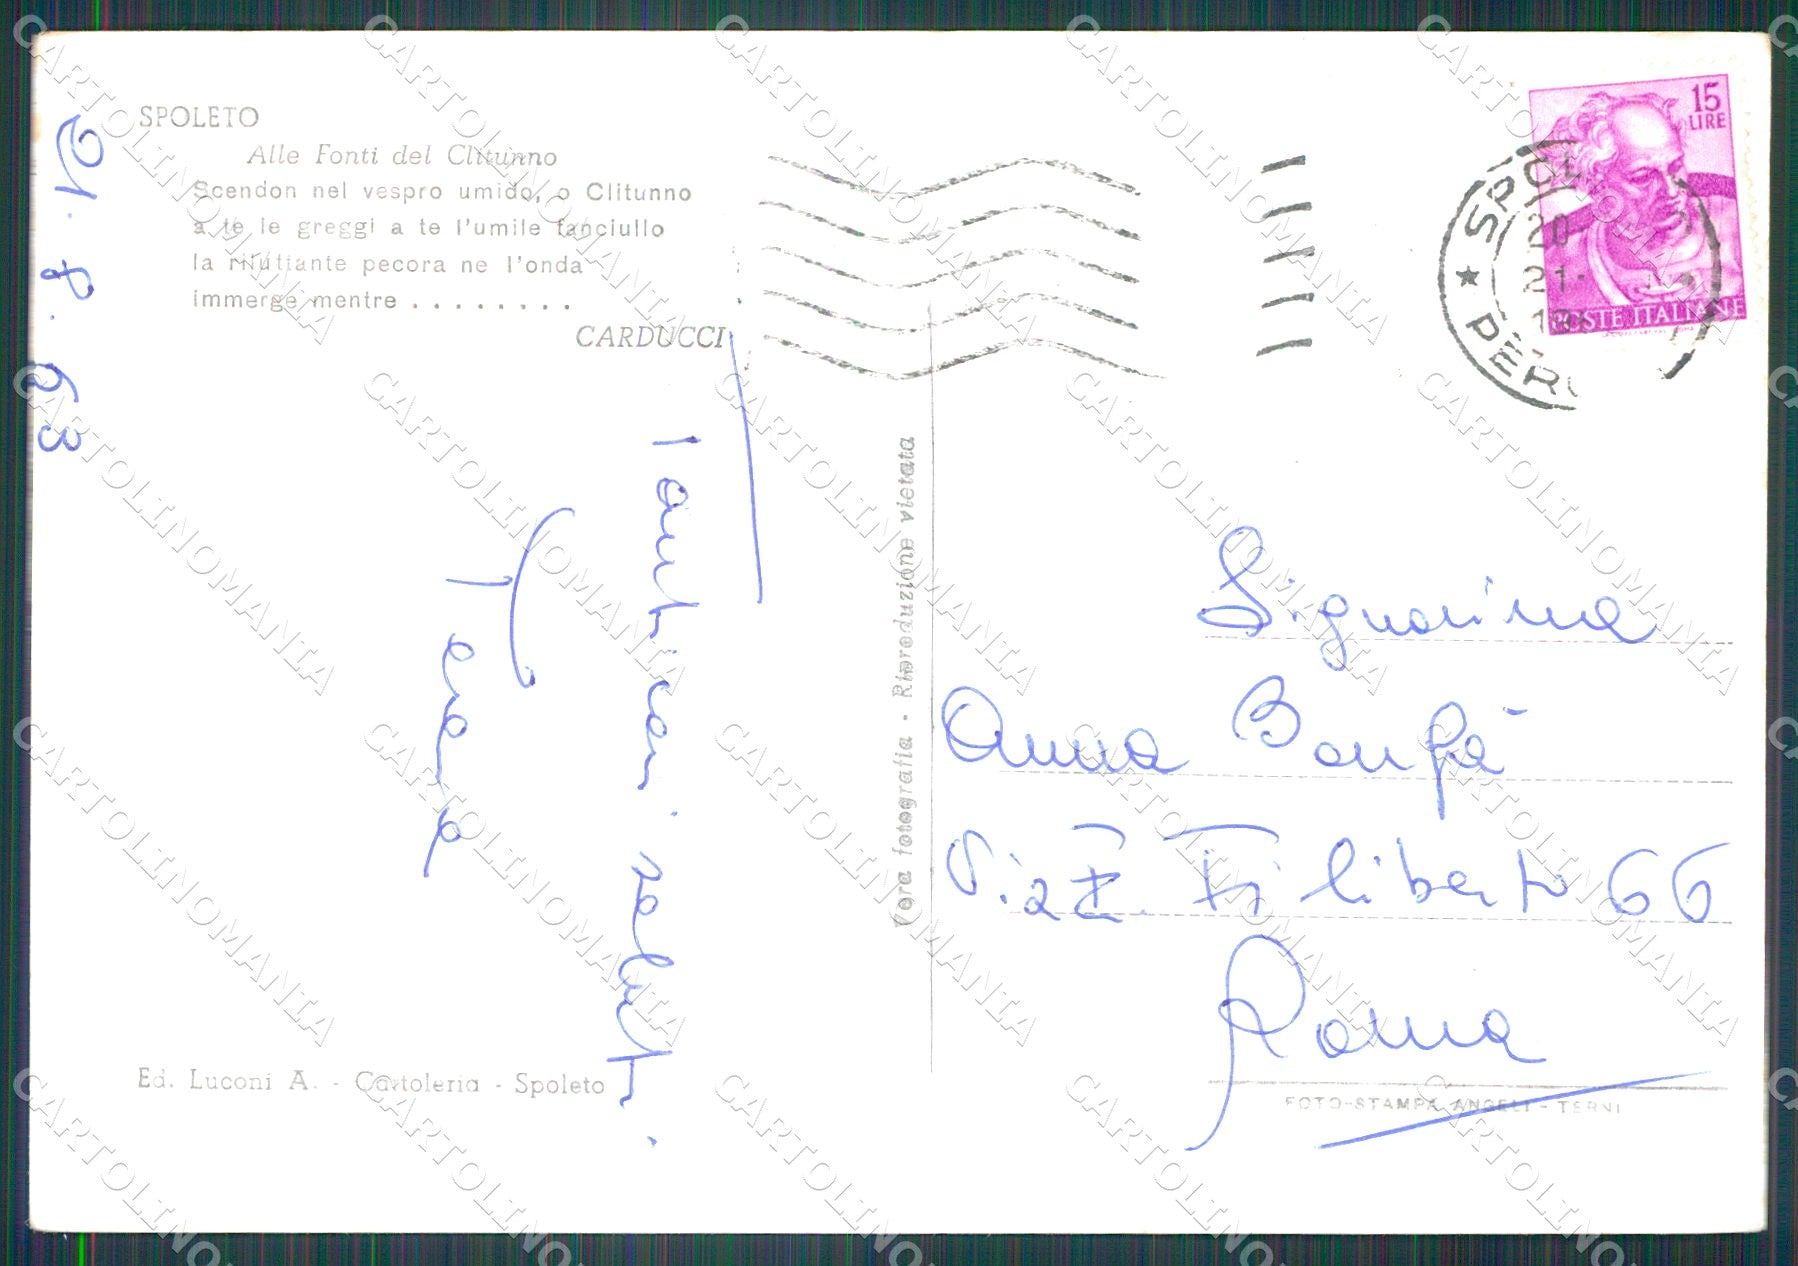 SPOLETO
Alle Fonti del Clitunno
Scendon nel vespro umido, o Clitunno
a te le greggi a te l'umile fanciullo
la riluttante pecora ne l'onda
immerge mentre . . . . . . . .
CARDUCCI
21.8.63
Tanti cari saluti.
Ed. Luconi A. - Cartoleria - Spoleto
Vera fotografia - Riproduzione vietata
15
LIRE
POSTE ITALIANE
SPOL
20
21
PERU
Signorina
Anna
Via E. Filiberto 66
Roma
FOTO-STAMPA ANGELI - TERNI
CARTOLINOMANIA